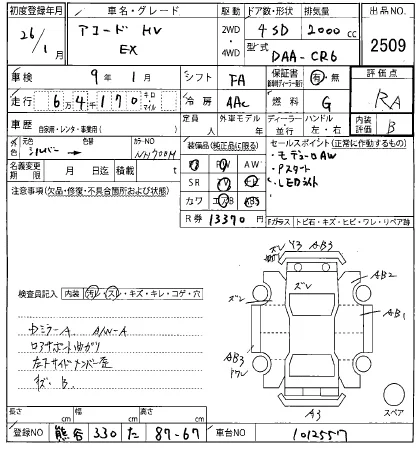 初度登録年月 車名・グレード 駆動 ドア数・形状 排気量 出品NO.
26/1月 アコード HV EX 2WD・4WD 4 SD 2000cc 2509
型式 DAA-CR6
車検 9年 1月 シフト FA 保証書 有・無 評価点
走行 6万4千170 キロ・マイル 冷房 AAC 燃料 G RA
車歴 自家用・レンタ・事業用( ) 定員 人 外車モデル 年 ディーラー 並行 ハンドル 左・右 内装評価 B
外色 元色 シルバー 色替 カラーNO NH700M
装備品(純正品に限る) セールスポイント(正常に作動するもの)
名義変更期限 月 日迄 積載 t
・モデューロAW
・Pスタート
・LEDライト
注意事項(欠品・修復・不具合箇所および状態)
SR
カワ
R券 13370円
Fガラス トビ石・キズ・ヒビ・ワレ・リペア跡
ズレ Y3 AB3
ズレ
AB2
ズレ
AB1
AB3
ワレ
A3
スペア
検査員記入 内装 汚レ・スレ・キズ・キレ・コゲ・穴
Dミラー A A/W-A
ロアサポート曲がり
左フサイドメンバー歪
キズ B
長さ cm 幅 cm 高さ cm
登録NO 熊谷 330 た 87-67 車台NO 1012557